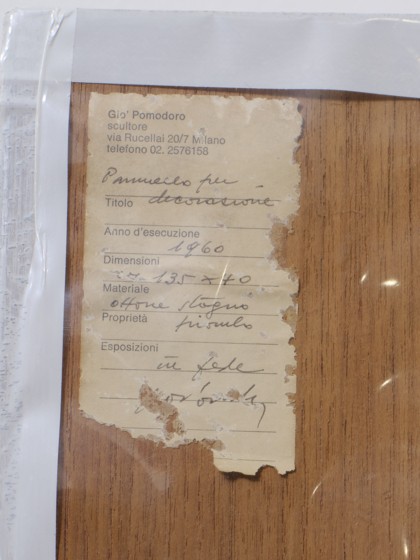 Gio' Pomodoro
scultore
via Rucellai 20/7 Milano
telefono 02. 2576158
per
Titolo decorazione
Anno d'esecuzione
1960
Dimensioni
135 x 40
Materiale
ottone stagno
Proprietà piombo
Esposizioni
in fede